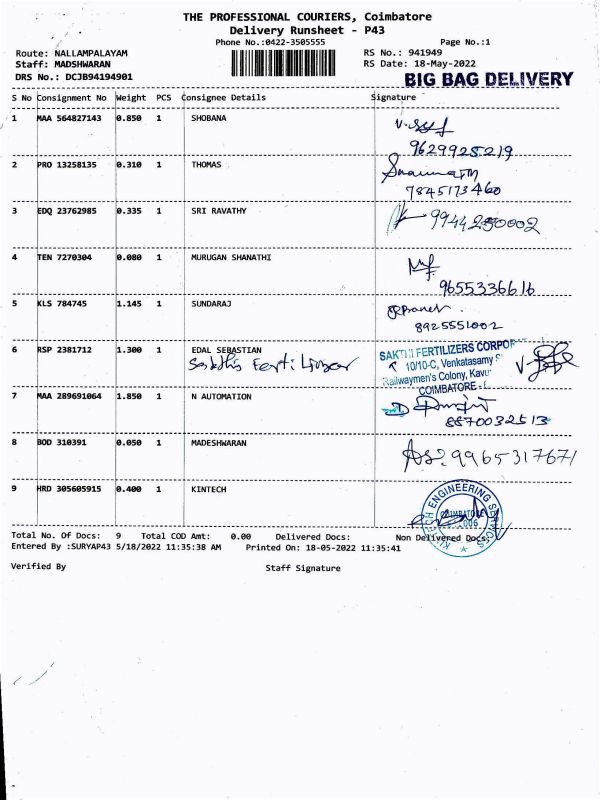 THE PROFESSIONAL COURIERS, Coimbatore
Delivery Runsheet - P43
Phone No.:0422-3505555 Page No.:1
Route: NALLAMPALAYAM RS No.: 941949
Staff: MADSHWARAN RS Date: 18-May-2022
DRS No.: DCJB94194901 BIG BAG DELIVERY
S No Consignment No Weight PCS Consignee Details Signature
1 MAA 564827143 0.850 1 SHOBANA
9629925219
2 PRO 13258135 0.310 1 THOMAS
7845173460
3 EDQ 23762985 0.335 1 SRI RAVATHY
9944250002
4 TEN 7270304 0.080 1 MURUGAN SHANATHI
9655336616
5 KLS 784745 1.145 1 SUNDARAJ
8925551002
6 RSP 2381712 1.300 1 EDAL SEBASTIAN SAKTHI FERTILIZERS CORPOR
10/10-C, Venkatasamy S
Railwaymen's Colony, Kavu
COIMBATORE -
7 MAA 289691064 1.850 1 N AUTOMATION
8870032513
8 BOD 310391 0.050 1 MADESHWARAN
9965317671
9 HRD 305605915 0.400 1 KINTECH
KINTECH ENGINEERING SERVICES
COIMBATORE
Total No. Of Docs: 9 Total COD Amt: 0.00 Delivered Docs: Non Delivered Docs:
Entered By :SURYAP43 5/18/2022 11:35:38 AM Printed On: 18-05-2022 11:35:41
Verified By Staff Signature